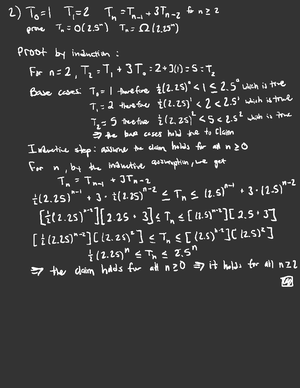 2) T₀=1 T₁=2 Tₙ=Tₙ₋₁+3Tₙ₋₂ for n≥2
prove Tₙ=O(2.5ⁿ) Tₙ=Ω(2.25ⁿ)
Proof by induction:
For n=2, T₂=T₁+3T₀=2+3(1)=5=T₂
Base cases: T₀=1 therefore ½(2.25)⁰<1≤2.5⁰ which is true
T₁=2 therefore ½(2.25)¹<2<2.5¹ which is true
T₂=5 therefore ½(2.25)²<5<2.5² which is true
⇒ the base cases hold due to claim
Inductive step: assume the claim holds for all n≥0
For n, by the inductive assumption, we get
Tₙ=Tₙ₋₁+3Tₙ₋₂
½(2.25)ⁿ⁻¹+3·½(2.25)ⁿ⁻²≤Tₙ≤(2.5)ⁿ⁻¹+3·(2.5)ⁿ⁻²
[½(2.25)ⁿ⁻²][2.25+3]≤Tₙ≤[(2.5)ⁿ⁻²][2.5+3]
[½(2.25)ⁿ⁻²][(2.25)²]≤Tₙ≤[(2.5)ⁿ⁻²][(2.5)²]
½(2.25)ⁿ≤Tₙ≤2.5ⁿ
⇒ the claim holds for all n≥0 ⇒ it holds for all n≥2